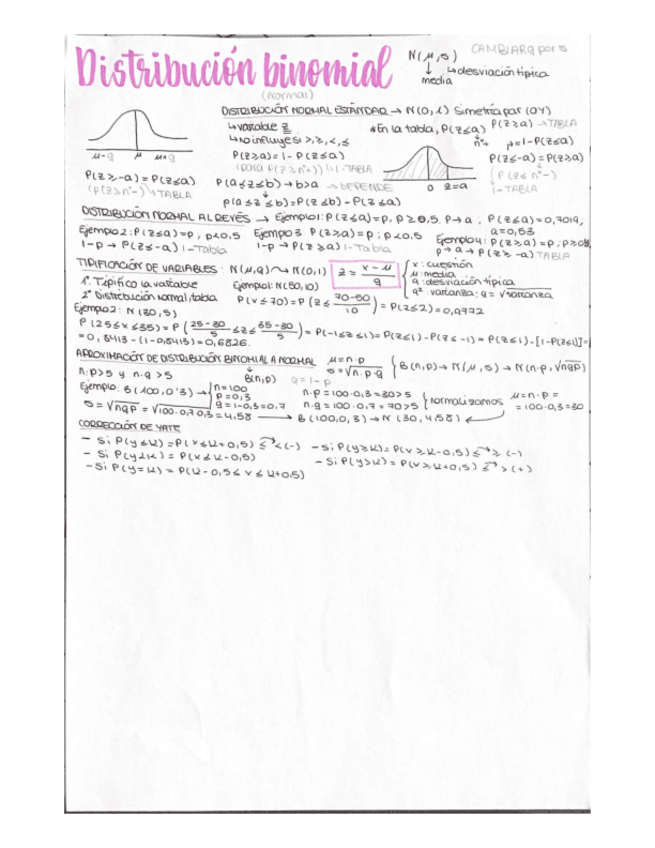 Distribución binomial
(normal)
N(μ,σ) CAMBIAR q por σ
↓ ↳desviación típica
media
DISTRIBUCIÓN NORMAL ESTÁNDAR → N(0,1) Simetría par (OY)
↳variable z
↳no influye si >,≥,<,≤
P(z≥a)=1-P(z≤a)
P(a≤z≤b)→b>a → DEPENDE
p(a≤z≤b)=P(z≤b)-P(z≤a)
*En la tabla, P(z≤a) P(z≥a) → TABLA
nº+ p=1-P(z≤a)
P(z≤-a)=P(z≥a)
(P(z≤nº-)
1-TABLA
0 z=a
μ-q μ μ+q
P(z≥-a)=P(z≤a)
(P(z≥nº-)→TABLA
DISTRIBUCIÓN NORMAL AL REVÉS → Ejemplo1: P(z≤a)=p, p≥0,5. p→a; P(z≤a)=0,7019,
a=0,53
Ejemplo2: P(z≤a)=p, p<0,5 Ejemplo 3 P(z≥a)=p; p<0,5 Ejemplo4: P(z≥a)=p; p≥0,5
1-p → P(z≤-a) 1-Tabla 1-p → P(z≥a) 1-Tabla p→a→P(z≥-a) TABLA
TIPIFICACIÓN DE VARIABLES: N(μ,q)→N(0,1) z=x-μ/q
x: cuestión
μ: media
q: desviación típica
q²: varianza; q=√varianza
1º Tipifico la variable Ejemplo1: N(50,10)
2º Distribución normal, tabla P(x≤70)=P(z≤70-50/10)=P(z≤2)=0,9772
Ejemplo2: N(30,5)
P(25≤x≤35)=P(25-30/5≤z≤35-30/5)=P(-1≤z≤1)=P(z≤1)-P(z≤-1)=P(z≤1)-[1-P(z≤1)]=
=0,8413-(1-0,8413)=0,6826.
APROXIMACIÓN DE DISTRIBUCIÓN BINOMIAL A NORMAL μ=n·p
σ=√n·p·q B(n,p)→N(μ,σ)→N(n·p,√npq)
n·p>5 y n·q>5 B(n,p) q=1-p
Ejemplo: B(100,0'3)→ n=100
p=0,3
q=1-0,3=0,7
n·p=100·0,3=30>5
n·q=100·0,7=70>5 normalizamos μ=n·p=
=100·0,3=30
σ=√nqp=√100·0,7·0,3=4,58 → B(100,0,3)→N(30,4,58)
CORRECCIÓN DE YATE
- Si P(y≤k)=P(x≤k+0,5) ≤→<(-) - Si P(y≥k)=P(x≥k-0,5) ≤→≥(-)
- Si P(y<k)=P(x≤k-0,5) - Si P(y>k)=P(x≥k+0,5) ≤→>(+)
- Si P(y=k)=P(k-0,5≤x≤k+0,5)